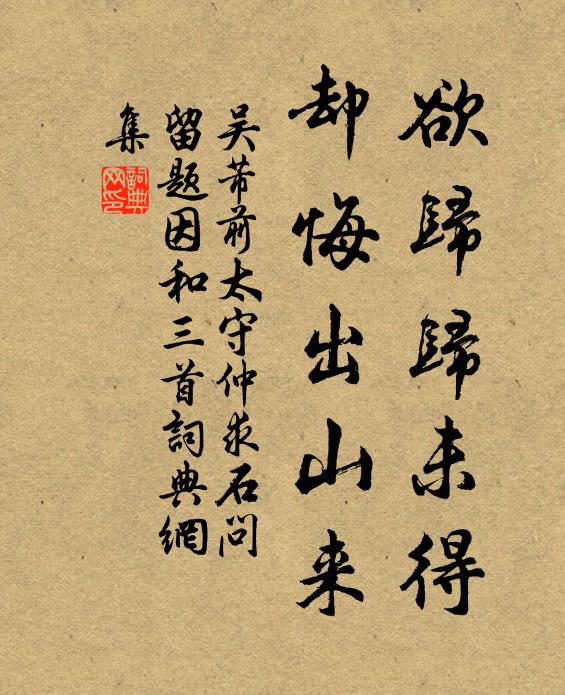 欲歸歸未得
却悔出山来
吴芾前太守仲求石问
留题因和三首詞典網
集
詞典
网印